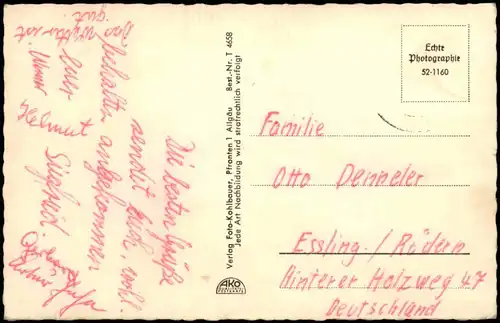 Die besten Grüße
sendet Euch, wohl-
behalten angekommen
Euer
Helmut
Siegfried.
Das Wetter ist
gut.
Verlag Foto-Kohlbauer, Pfronten 1 Allgäu Best.-Nr. T 4658
Jede Art Nachbildung wird strafrechtlich verfolgt
AKO
Echte
Photographie
52-1160
Familie
Otto Denneler
Essling./Rüdern
Hinterer Holzweg 47
Deutschland